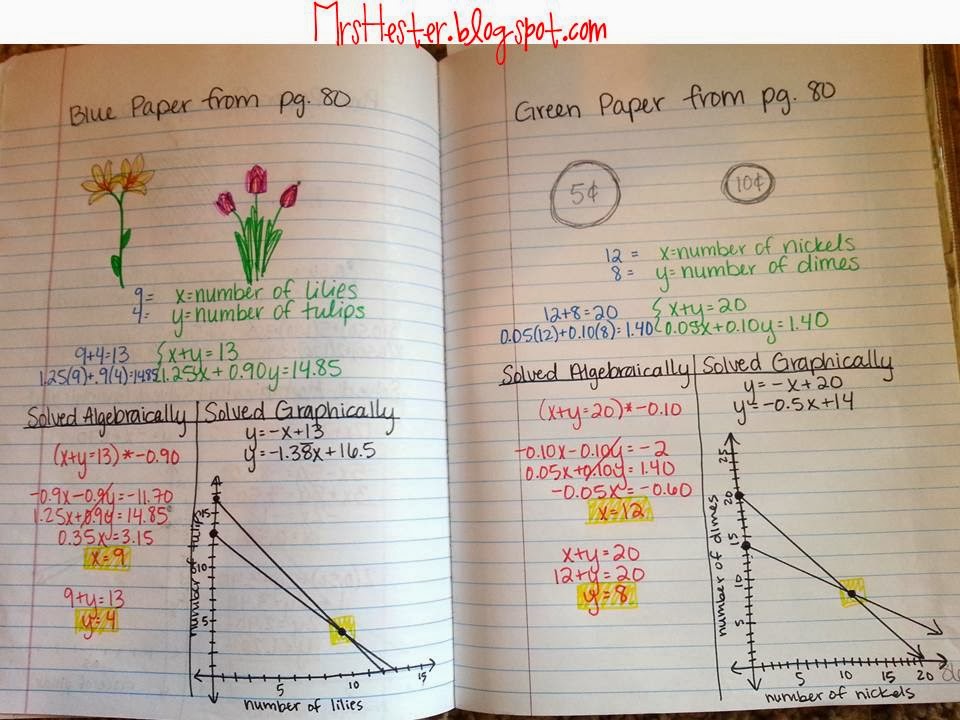 MrsHester.blogspot.com
Blue Paper from pg. 80
9= x=number of lilies
4= y=number of tulips
9+4=13 {x+y=13
1.25(9)+.9(4)=14.85 1.25x+0.90y=14.85
Solved Algebraically
(x+y=13)*-0.90
-0.9x-0.9y=-11.70
1.25x+0.9y=14.85
0.35x=3.15
x=9
9+y=13
y=4
Solved Graphically
y=-x+13
y=-1.38x+16.5
number of tulips
15
10
5
5 10 15
number of lilies
Green Paper from pg. 80
5¢ 10¢
12 = x=number of nickels
8 = y=number of dimes
12+8=20 {x+y=20
0.05(12)+0.10(8)=1.40 0.05x+0.10y=1.40
Solved Algebraically
(x+y=20)*-0.10
-0.10x-0.10y=-2
0.05x+0.10y=1.40
-0.05x=-0.60
x=12
x+y=20
12+y=20
y=8
Solved Graphically
y=-x+20
y=-0.5x+14
number of dimes
25
20
15
10
5
5 10 15 20
number of nickels